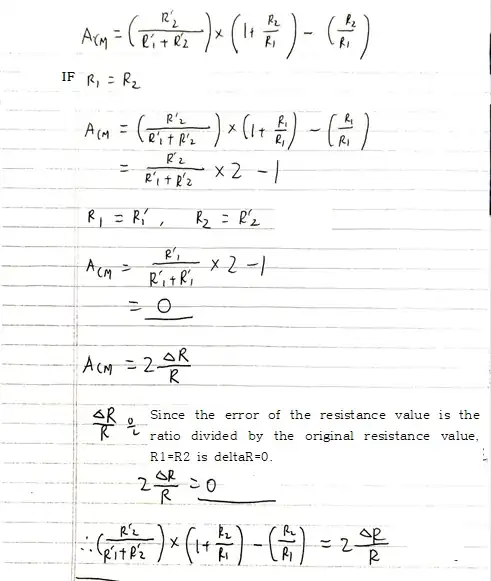 A_CM = (R'2 / (R'1 + R'2)) × (1 + R2/R1) − (R2/R1)
IF R1 = R2
A_CM = (R'2 / (R'1 + R'2)) × (1 + R1/R1) − (R1/R1)
= R'2 / (R'1 + R'2) × 2 − 1
R1 = R1', R2 = R'2
A_CM = R'1 / (R'1 + R'1) × 2 − 1
= 0
A_CM = 2 ΔR/R
ΔR/R Since the error of the resistance value is the
ratio divided by the original resistance value,
R1=R2 is deltaR=0.
2 ΔR/R = 0
∴ (R'2 / (R'1 + R'2)) × (1 + R2/R1) − (R2/R1) = 2 ΔR/R